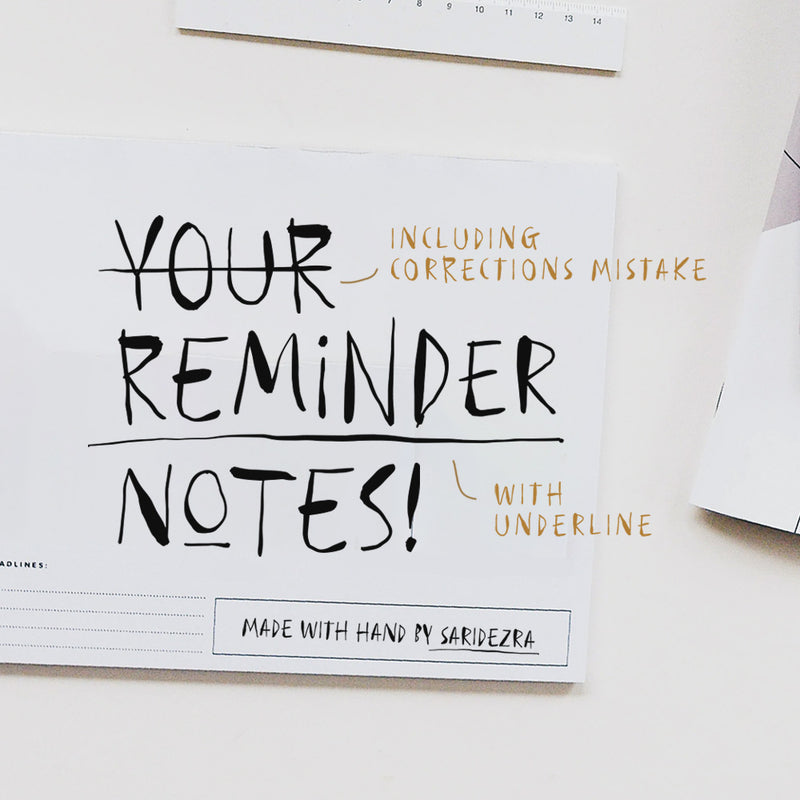 7 8 9 10 11 12 13 14
YOUR
INCLUDING
CORRECTIONS MISTAKE
REMINDER
NOTES!
WITH
UNDERLINE
ADLINES:
MADE WITH HAND BY SARIDEZRA